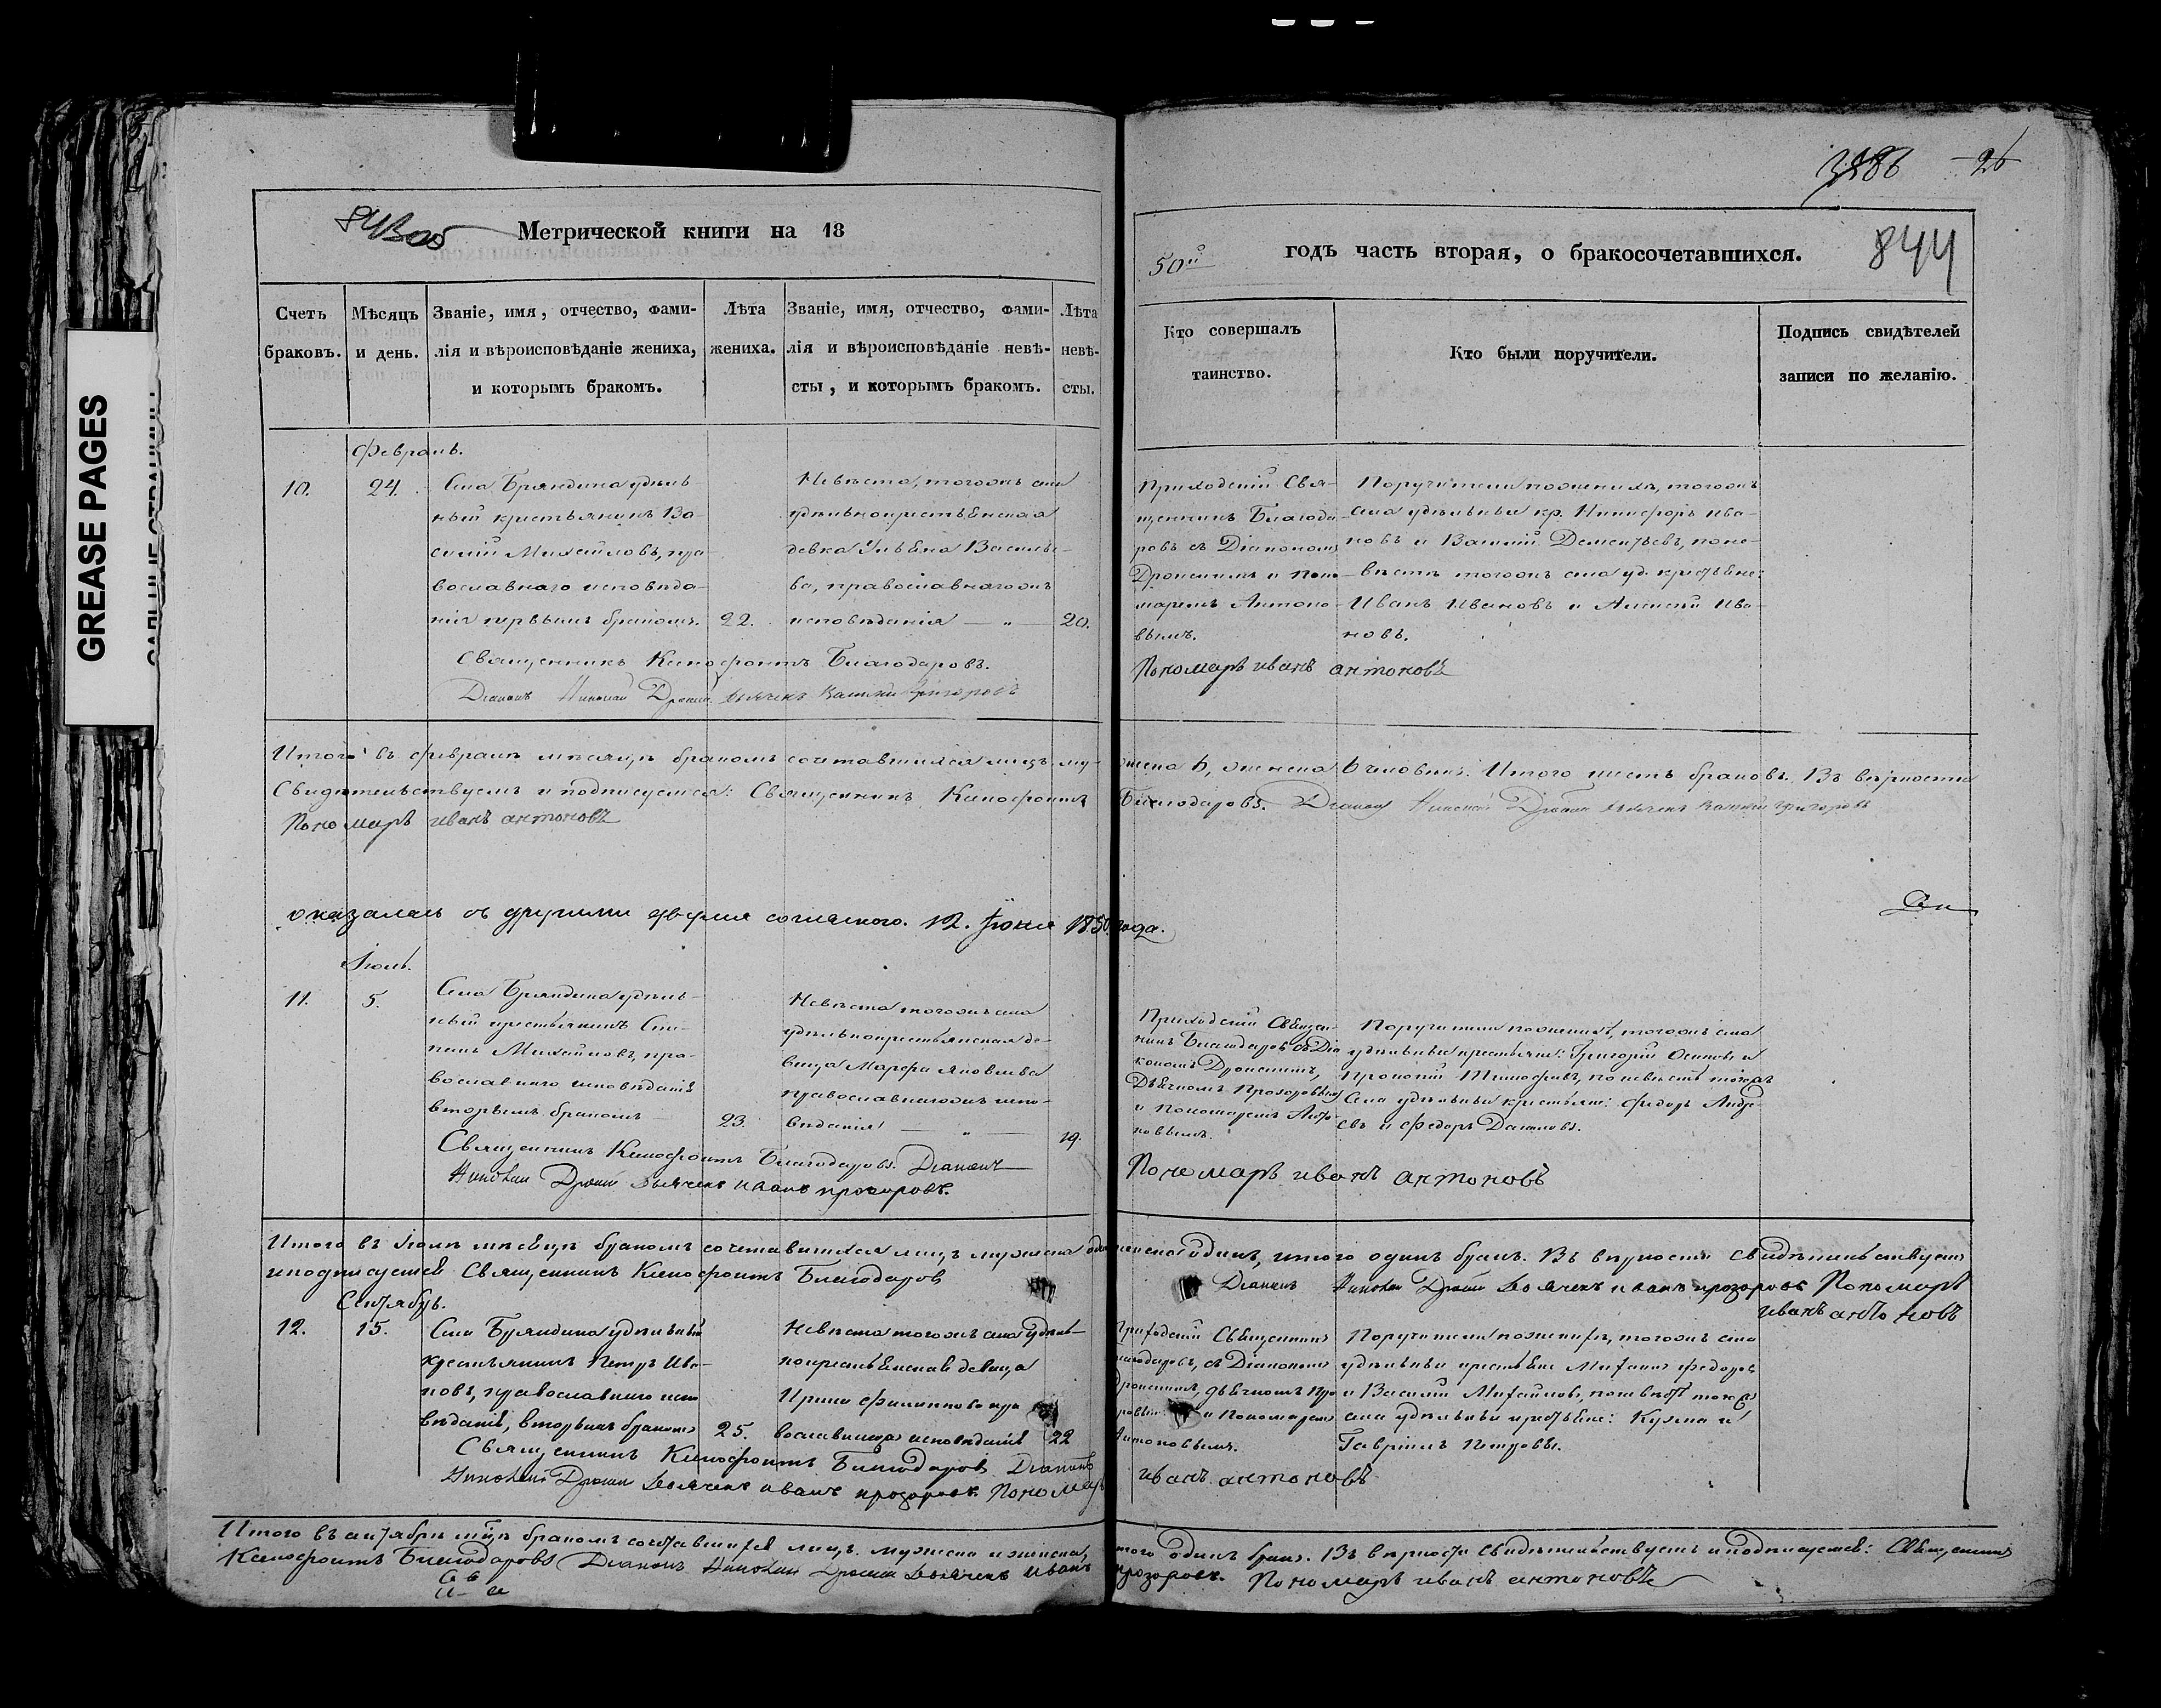 GREASE PAGES
3486 26
Метрической книги на 18
50й годъ часть вторая, о бракосочетавшихся. 844
Счетъ браковъ.
Мѣсяцъ и день.
Званіе, имя, отчество, фами-
лія и вѣроисповѣданіе жениха,
и которымъ бракомъ.
Лѣта жениха.
Званіе, имя, отчество, фами-
лія и вѣроисповѣданіе невѣ-
сты, и которымъ бракомъ.
Лѣта невѣ-
сты.
Кто совершалъ
таинство.
Кто были поручители.
Подпись свидѣтелей
записи по желанію.
Февраль.
10.
24.
Села Бряндина удѣль-
ный крестьянинъ Ва-
силій Михайловъ, пра-
вославнаго исповѣда-
нія первымъ бракомъ.
22.
Невѣста, тогожъ села
удѣльнокрестьянская
девка Ульяна Василье-
ва, православнагожъ
исповѣданія — „ —
20.
Приходскій Свя-
щенникъ Благода-
ровъ съ Діакономъ
Дрониымъ и поно-
маремъ Антоно-
вымъ.
Поручители по женихѣ, тогожъ
села удѣльные кр. Никифоръ Ива-
новъ и Василій Дементьевъ, поне-
вѣстѣ тогожъ села уд. крестьяне:
Иванъ Ивановъ и Алексѣй Ива-
новъ.
Священникъ Ксенофонтъ Благодаровъ.
Діаконъ Николай
Пономарь иванъ антоновъ
Итого въ февралѣ мѣсяцѣ бракомъ сочетавшихся лицъ му-
жеска 6, женска 6 человѣкъ. Итого шесть браковъ. Въ вѣрности
Свидѣтельствуемъ и подписуемся: Священникъ Ксенофонтъ
Благодаровъ. Діаконъ Николай
Пономарь иванъ антоновъ
оказалась съ другими двумя согласною. 12. Іюня 1850 года.
Іюль.
11.
5.
Села Бряндина удѣль-
ный крестьянинъ Сте-
панъ Михайловъ, пра-
вославнаго исповѣданія
вторымъ бракомъ
23.
Невѣста тогожъ села
удѣльнокрестьянская де-
вица Марфа Яковлева
православнагожъ испо-
вѣданія — „ —
19.
Приходскій Священ-
никъ Благодаровъ съ Діа
кономъ Дрониымъ,
Дьячкомъ Прозоровымъ
и пономаремъ Анто-
новымъ.
Поручители по женихѣ, тогожъ села
удѣльные крестьяне: Григорій Осиповъ и
Прокопій Тимофеевъ, по невѣстѣ тогожъ
Села удѣльные крестьяне: Федоръ Андре-
евъ и Федоръ Даниловъ.
Священникъ Ксенофонтъ Благодаровъ. Діаконъ
Николай дьячекъ иванъ прозоровъ.
Пономарь иванъ антоновъ
Итого въ Іюлѣ мѣсяцѣ бракомъ сочетавшихся лицъ мужеска
женска одинъ, итого одинъ бракъ. Въ вѣрности свидѣтельствуемъ
и подписуемся Священникъ Ксенофонтъ Благодаровъ
Діаконъ Николай дьячекъ иванъ прозоровъ Пономарь
иванъ антоновъ
Сентябрь.
12.
15.
Села Бряндина удѣльный
крестьянинъ Петръ Ива-
новъ, православнаго испо
вѣданія, вторымъ бракомъ
25.
Невѣста тогожъ села удѣль-
нокрестьянская девица
Ирина Филиппова пра
вославнаго исповѣданія
22
Приходскій Священникъ
Благодаровъ, съ Діакономъ
Дрониымъ, дьячкомъ Про
и Пономаремъ
Антоновымъ.
Поручители по женихѣ, тогожъ села
удѣльные крестьяне Михаилъ Федоровъ
и Василій Михайловъ, по невѣстѣ
села удѣльные крестьяне: Кузма и
Гавріилъ Петровы.
Священникъ Ксенофонтъ Благодаровъ Діаконъ
Николай дьячекъ иванъ прозоровъ. Пономарь
иванъ антоновъ
Итого въ сентябрѣ мцѣ бракомъ сочетавшихся лицъ мужеска и женска,
итого одинъ бракъ. Въ вѣрности свидѣтельствуемъ и подписуемся: Священникъ
Ксенофонтъ Благодаровъ Діаконъ Николай дьячекъ иванъ
прозоровъ. Пономарь иванъ антоновъ